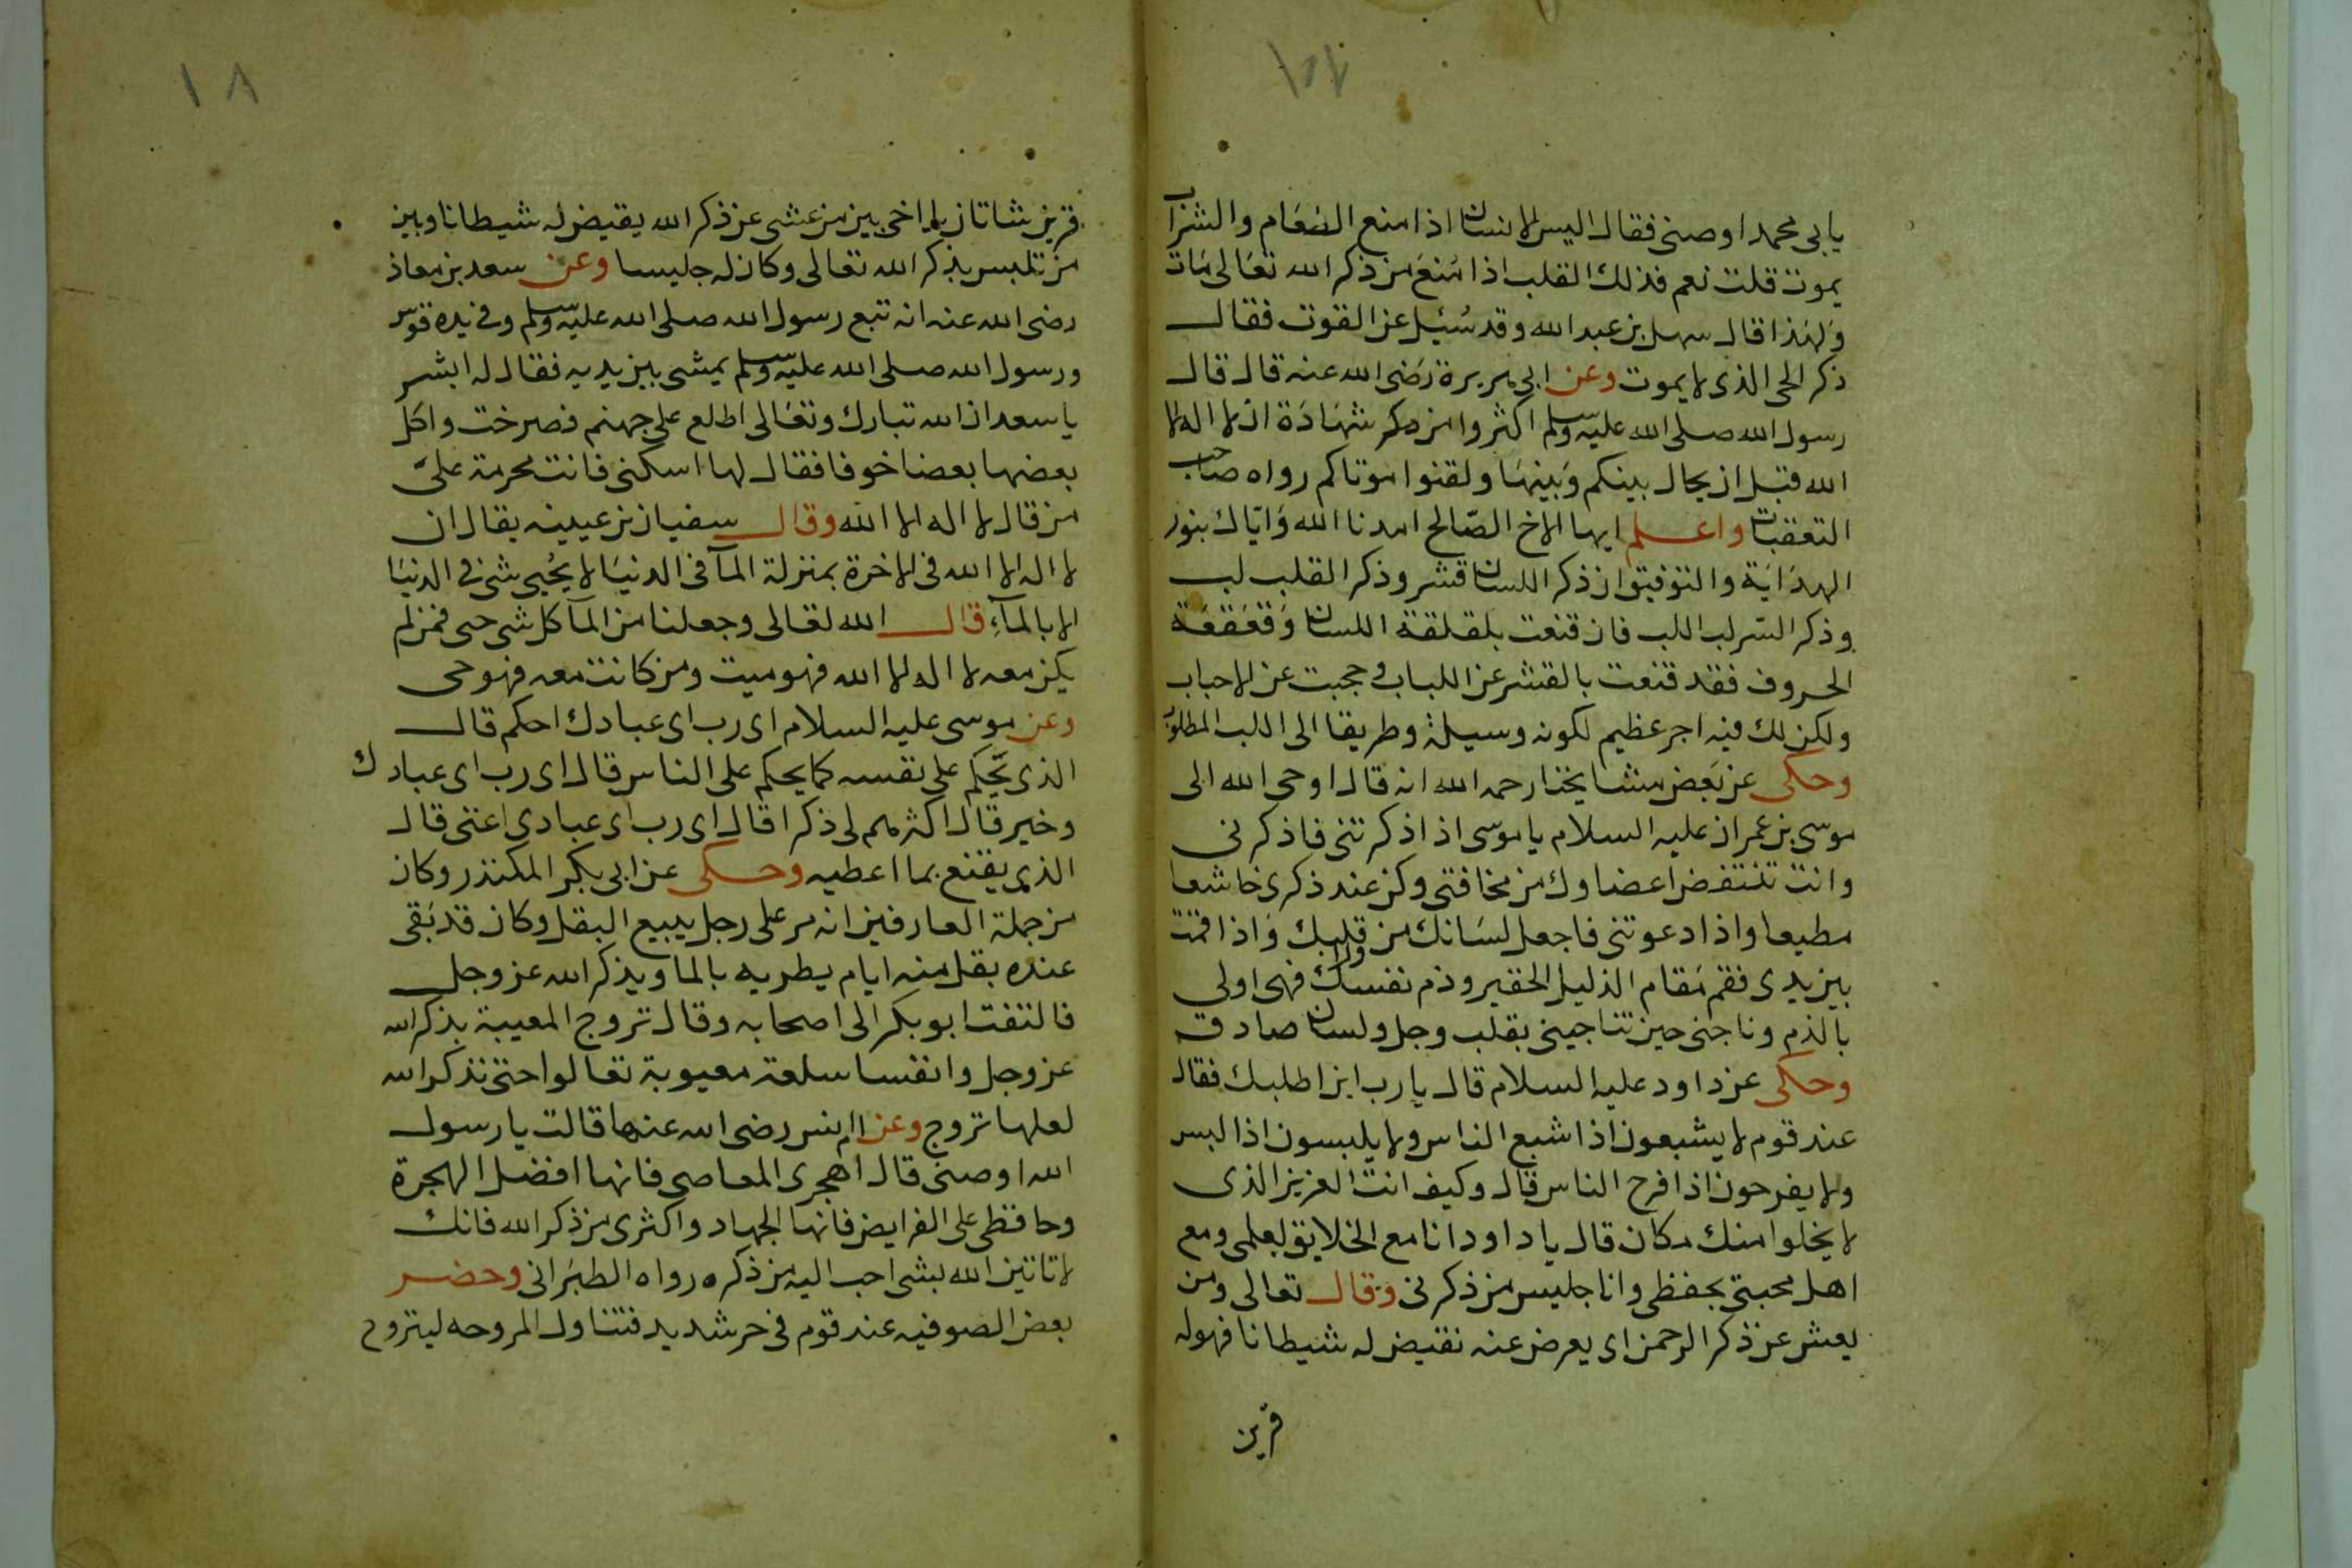 يابى محمد اوصنى فقال اليس الانسان اذا منع الطعام والشراب
يموت قلت نعم فذلك القلب اذا مُنعَ من ذكر الله تعَالى مَات
وَلهَذا قال سهل بن عبد الله وقد سُئِل عن القوت فقال
ذكر الحى الذى لا يموت وعن ابى هريرة رَضى الله عنه قال قال
رسول الله صلى الله عليه وسلم اكثروا من ذكر شهَادَة ان لا اله الا
الله قبل ان يحال بينكم وَبينهَا ولقنوا موتاكم رواه صاحب
التعقبات واعلم ايها الاخ الصّالح امدنا الله وَايّاك بنور
الهدَايَة والتوفيق ان ذكر اللسان قشر وذكر القلب لب
وذكر السّر لب اللب فان قنعت بلقلقة اللسان وَقعَقعَة
الحروف فقد قنعت بالقشر عن اللباب و حجبت عن الاحباب
ولكن لك فيه اجر عظيم لكونه وسيلة وطريقا الى اللب المطلوب
وحكى عن بَعض مشايخنا رحمه الله انه قال اوحى الله الى
موسى بن عمران عليه السلام يا موسى اذا ذكرتنى فاذكرنى
وانت تنتفض اعضاوك من مخافتى وكن عند ذكرى خاشعا
مطيعا واذا دعوتنى فاجعل لسَانك من ورا قلبك وَاذا قمت
بين يدى فقم مَقام الذليل الحقير وذم نفسك فهى اولى
بالذم وناجنى حين تناجينى بقلب وجل ولسان صادق
وحكى عن داود عليه السلام قال يا رب اين اطلبك فقال
عند قوم لا يشبعون اذا شبع الناس ولا يلبسون اذا لبس
ولا يفرحون اذا فرح الناس قال وكيف انت العزيز الذى
لا يخلوا منك مكان قال يا داود انا مع الخلايق بعلمى ومع
اهل محبتى بحفظى وانا جليس من ذكرنى وقال تعالى ومن
يعش عن ذكر الرحمن اى يعرض عنه نقيض له شيطانا فهو له
قرين
١٨
قرين شاتان يا اخى بين من عشى عن ذكر الله يقيض له شيطانا وبين
من تلبس بذكر الله تعالى وكان له جليسا وعن سعد بن معاذ
رضى الله عنه انه تبع رسول الله صلى الله عليه وسلم وفى يده قوس
ورسول الله صلى الله عليه وسلم يمشى بين يديه فقال له ابشر
يا سعد ان الله تبارك وتعَالى اطلع على جهنم فصرخت واكل
بعضها بعضا خوفا فقال لها اسكنى فانت محرمة علىّ
من قال لا اله الا الله وقال سفيان بن عيينه يقال ان
لا اله الا الله فى الاخرة بمنزلة المآ فى الدنيَا لا يحُيى شئ فى الدنيَا
الا بالمآءِ قال الله تعالى وجعلنا من المآ كل شى حى فمن لم
يكن معه لا اله الا الله فهو ميت ومن كانت معه فهو حى
وعن موسى عليه السلام اى رب اى عبادك احكم قال
الذى يَحكم على نفسه كما يحكم على الناس قال اى رب اى عبادك
وخير قال اكثرهم لى ذكرا قال اى رب اى عبادى اغنى قال
الذى يقنع بما اعطيه وحكى عن ابى بكر المكندر وكان
من جملة العارفين انه مر على رجل يبيع البقل وكان قد بَقى
عنده بقل منه ايام يطريه بالما ويذكر الله عز وجل
فالتفت ابو بكر الى اصحابه وقال تروج المعيبة بذكر الله
عز وجل وانفسا سلعة معيوبة تعالوا حتى نذكر الله
لعلها تروج وعن ام انس رضى الله عنها قالت يا رسول
الله اوصنى قال اهجرى المعاصى فانها افضل الهجرة
وحافظى على الفرايض فانها الجهاد واكثرى من ذكر الله فانك
لا تاتين الله بشى احب اليه من ذكره رواه الطبَرانى وحضر
بعض الصوفيه عند قوم فى حر شديد فتناول المروحه ليتروح